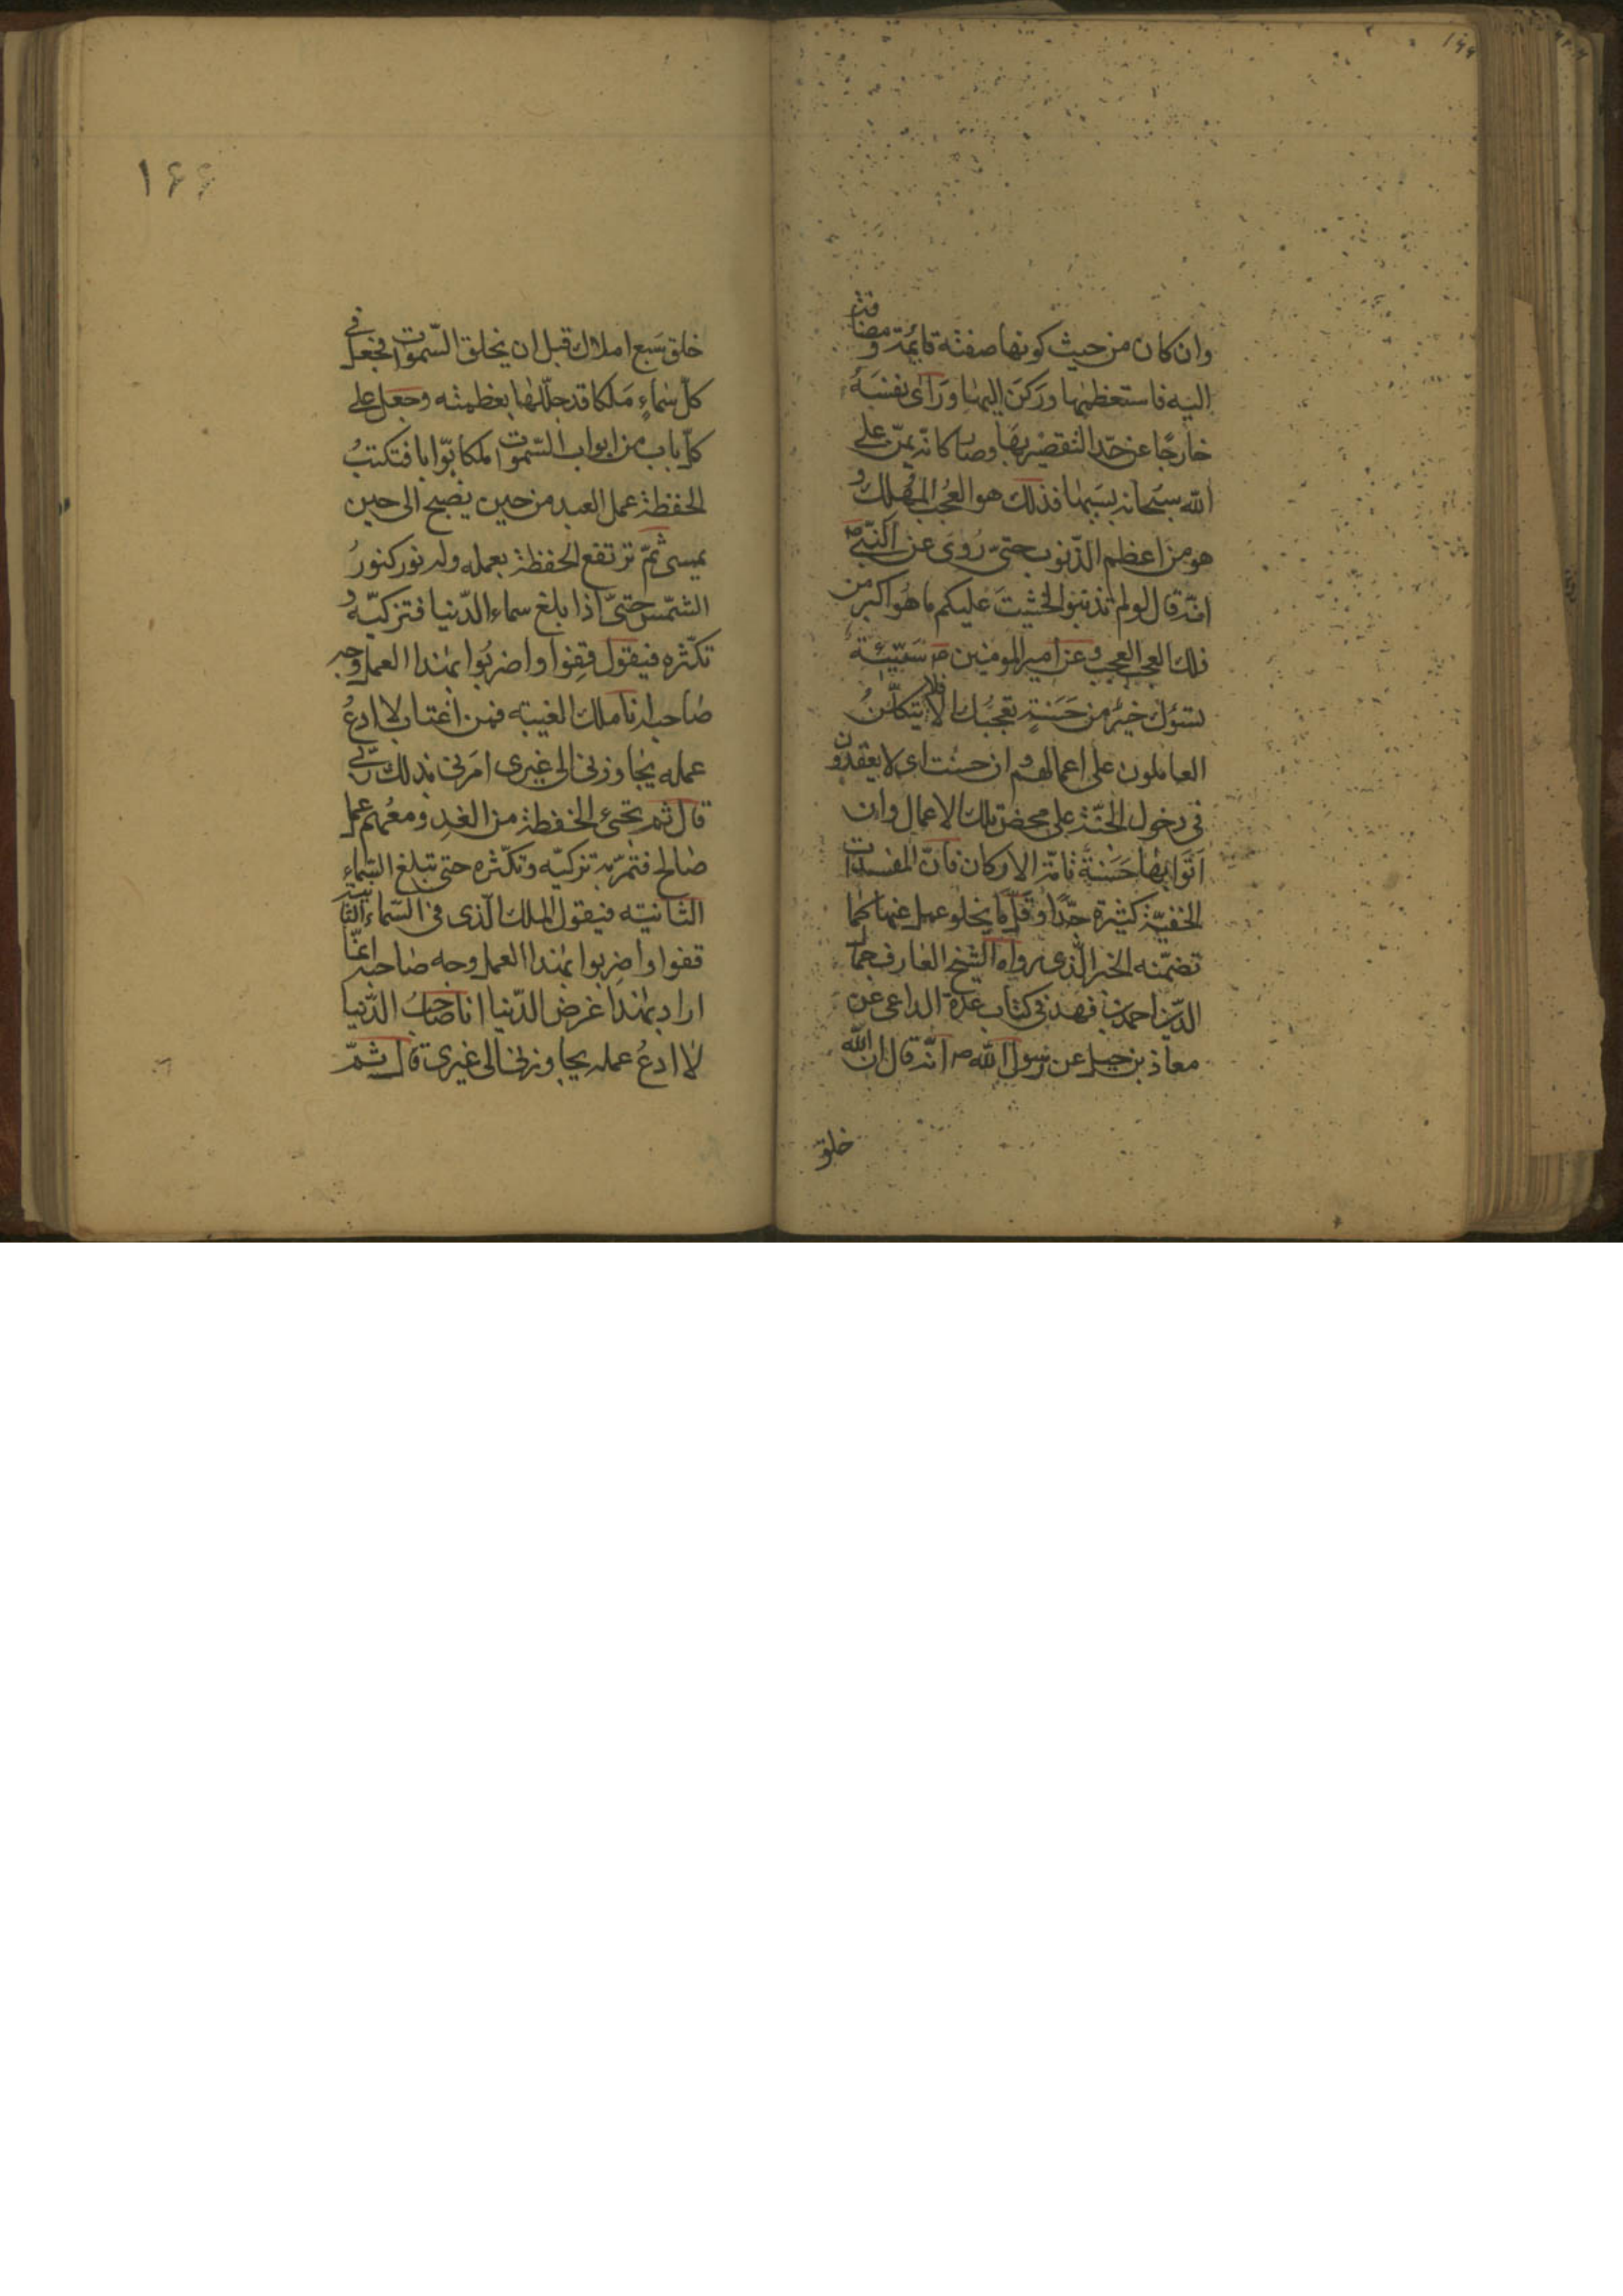 وان كان من حيث كونها صفته قائمة ومضافة
اليه فاستعظمها وركن اليها وراى نفسه
خارجا عن حدّ التقصير بها وصار كانّه يمنّ على
الله سبحانه بسببها فذلك هو العجب المهلك و
هو من اعظم الذّنوب حتّى روى عن النّبىّ ص
انّه قال لو لم تذنبوا لخشيت عليكم ما هو اكبر من
ذلك العجب العجب وعن امير المومنين سيّئة
تسؤك خير من حسنة تعجبك الا فلا يتكلّنّ
العاملون على اعمالهم وان حسنت اى لا يعتقدون
فى دخول الجنّة على محض تلك الاعمال وان
اتوا بها حسنة تامّة الاركان فانّ المفسدات
الخفيّة كثيرة جدّا وقلّما يخلو عمل عنها كما
تضمّنه الخبر الّذى رواه الشّيخ العارف جمال
الدّين احمد بن فهد فى كتاب عدة الداعى عن
معاذ بن جبل عن رسول الله ص انّه قال ان الله
خلق
۱۶۶
خلق سبع املاك قبل ان يخلق السّموات فجعل فى
كلّ سماء ملكا قد جلّلها بعظمته وجعل على
كلّ باب من ابواب السّموات ملكا بوّابا فتكتب
الحفظة عمل العبد من حين يصبح الى حين
يمسى ثمّ ترتفع الحفظة بعمله وله نور كنور
الشّمس حتّى اذا بلغ سماء الدّنيا فتزكّيه و
تكثّره فيقول قفوا واضربوا بهذا العمل وجه
صاحبه انا ملك الغيبه فمن اغتاب لا ادع
عمله يجاوزنى الى غيرى امرنى بذلك ربّى
قال ثمّ تجئ الحفظة من الغد ومعهم عمل
صالح فتمرّ به تزكيّه وتكثّره حتى تبلغ السّماء
الثّانيّه فيقول الملك الّذى فى السّماء الثّانية
قفوا واضربوا بهذا العمل وجه صاحبه انّما
اراد بهذا غرض الدّنيا انا صاحب الدّنيا
لا ادع عمله يجاوزنى الى غيرى قال ثمّ